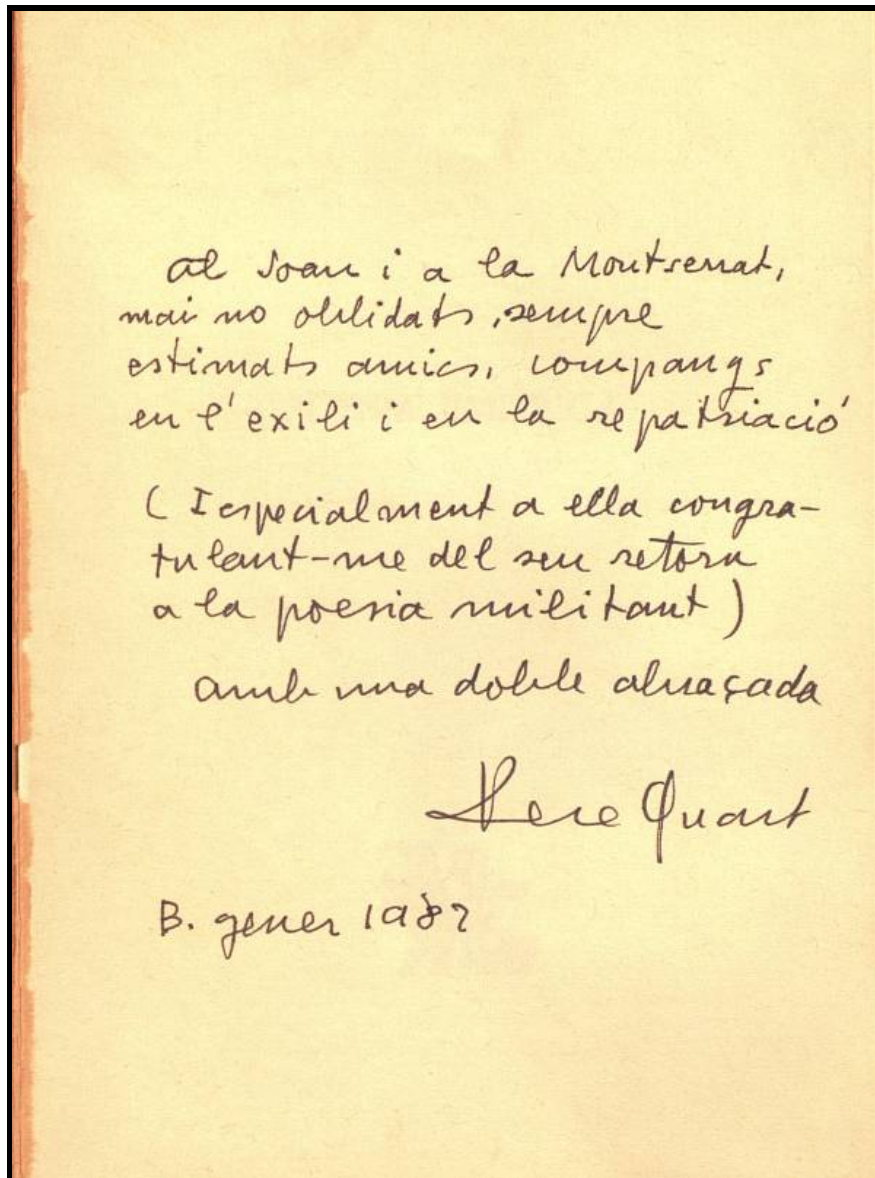 al Joan i a la Montserrat,
mai no oblidats, sempre
estimats amics, companys
en l'exili i en la repatriació
(I especialment a ella congra-
tulant-me del seu retorn
a la poesia militant)
amb una doble abraçada
Pere Quart
B. gener 1982